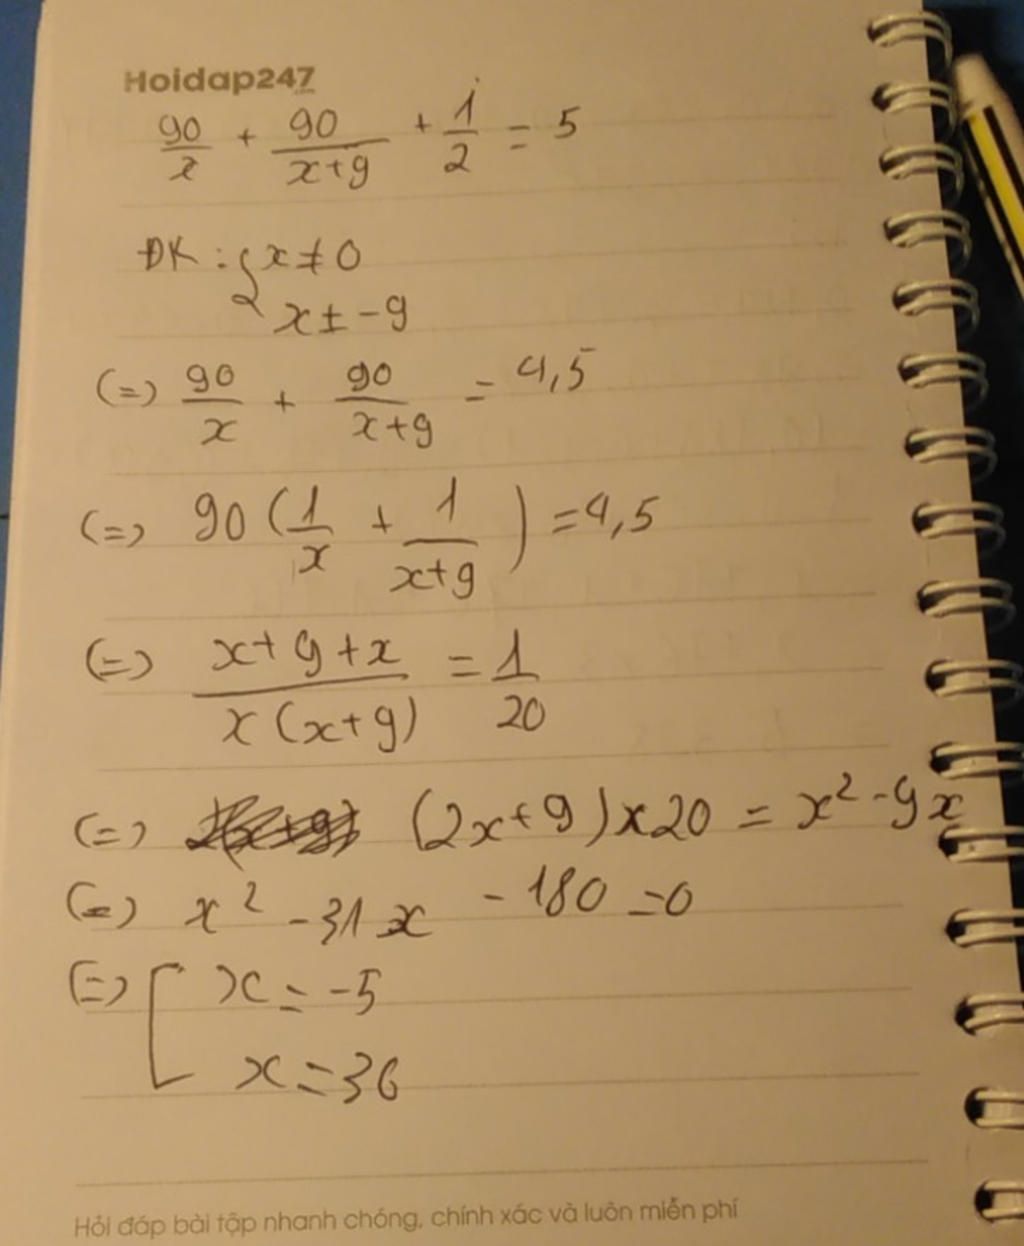 Hoidap247
90/x + 90/(x+9) + 1/2 = 5
ĐK : { x ≠ 0
x ± -9
(=) 90/x + 90/(x+9) = 4,5
(=) 90 (1/x + 1/(x+9)) = 4,5
(=) (x+9+x)/(x(x+9)) = 1/20
(=) (2x+9)x20 = x² - 9x
(=) x² - 31x - 180 = 0
(=) [ x = -5
x = 36
Hỏi đáp bài tập nhanh chóng, chính xác và luôn miễn phí